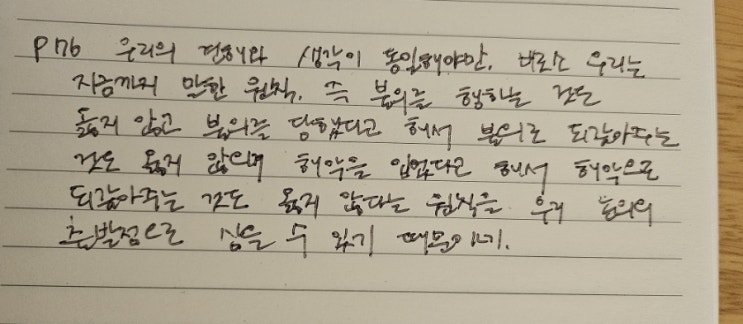 P176 우리의 견해와 생각이 동일해야만, 비로소 우리는
지금까지 말한 원칙, 즉 불의를 행하는 것도
옳지 않고 불의를 당했다고 해서 불의로 되갚아주는
것도 옳지 않으며 해악을 입었다고 해서 해악으로
되갚아주는 것도 옳지 않다는 원칙을 우리 논의의
출발점으로 삼을 수 있기 때문이네.